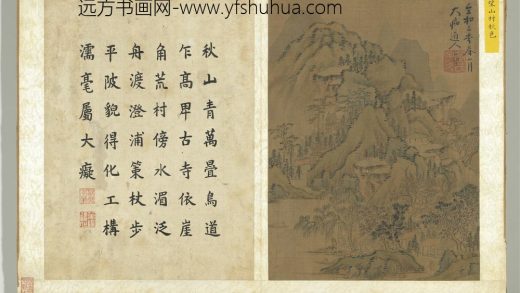 远方书画网-www.yfshuhua.com
秋山青萬疊鳥道
乍高畀古寺依崖
角荒村傍水湄泛
舟渡澄浦策杖步
平陂貌得化工構
濡毫屬大癡
大癡道人
山村秋色